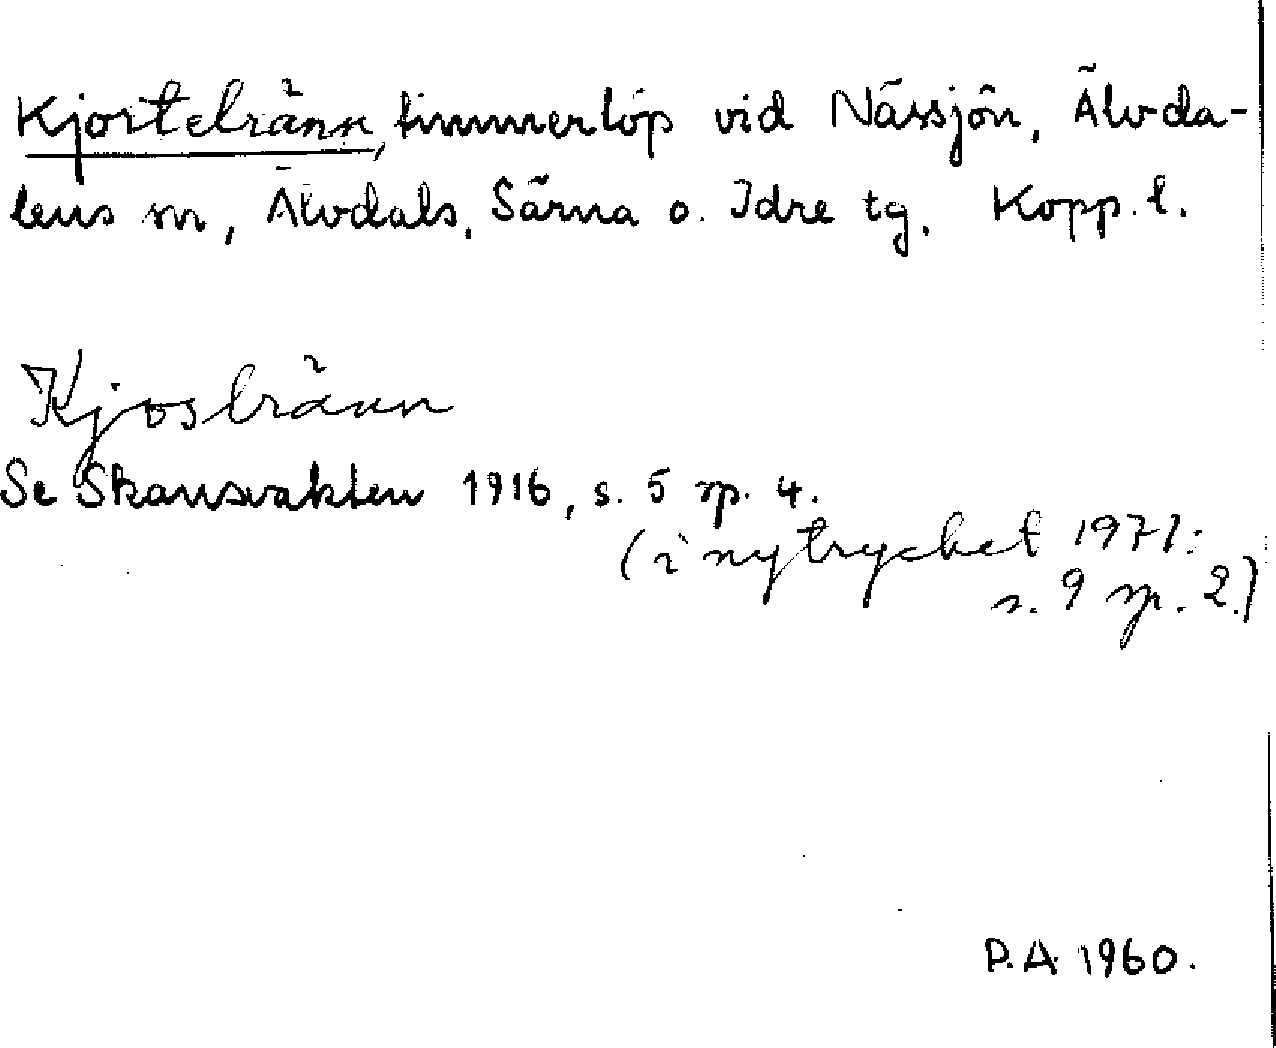 Kjortelränn, timmerlöp vid Nässjön, Älvda-
lens sn, Älvdals, Särna o. Idre tg. Kopp. l.
Kjosbränn
Se Skansvakten 1916, s. 5 sp. 4.
(i nytrycket 1971:
s. 9 sp. 2.)
P.A. 1960.